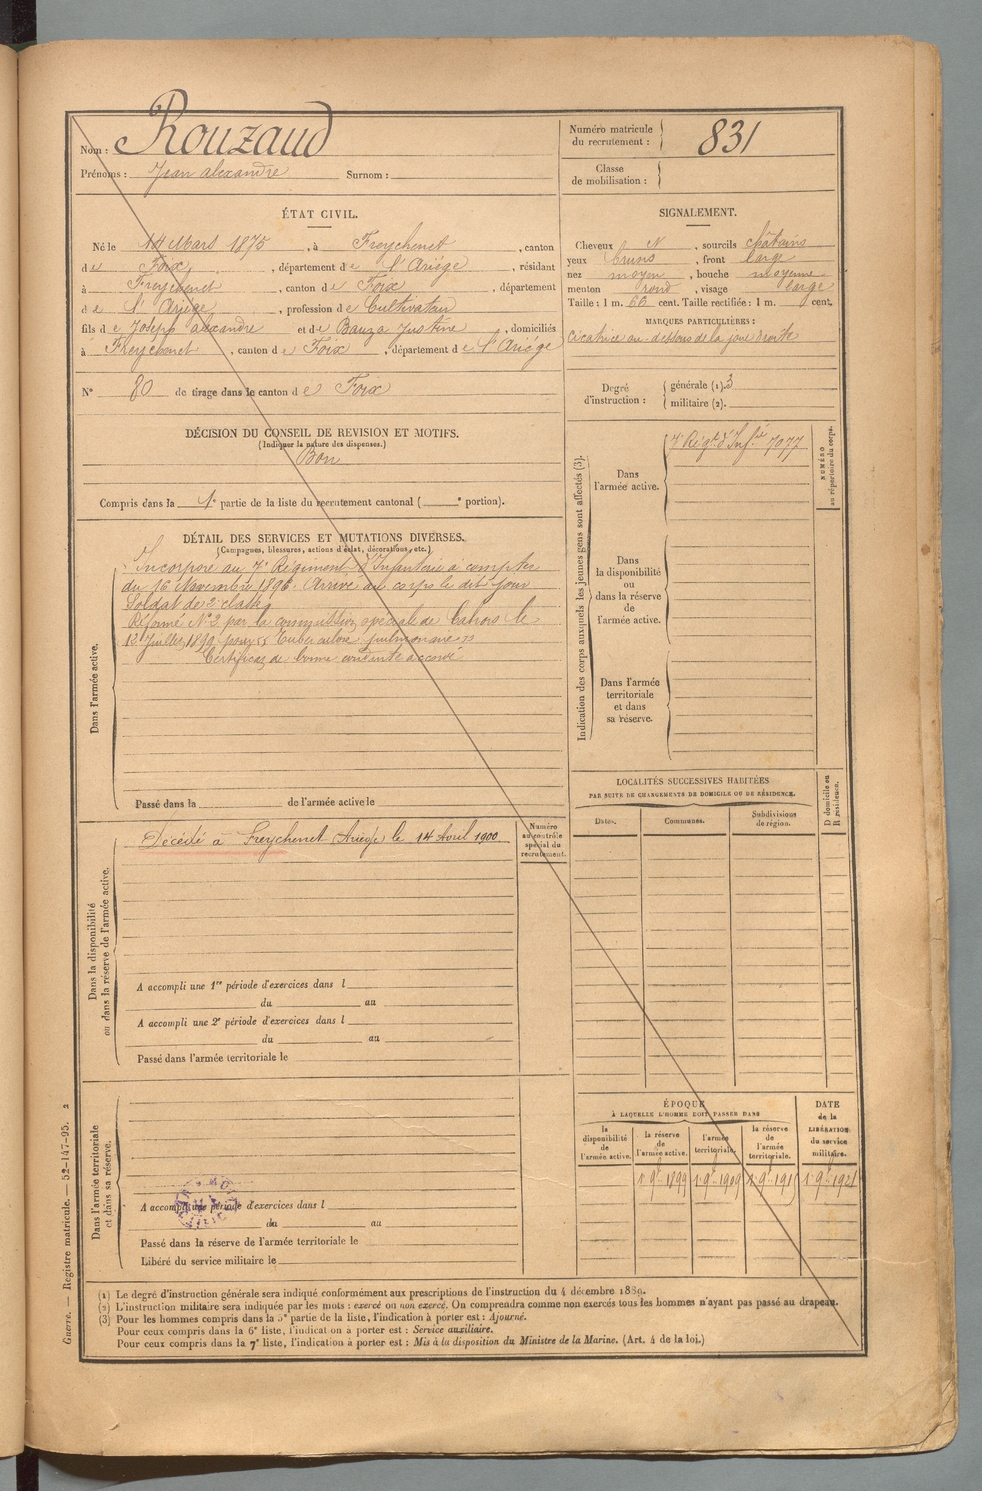 Nom : Rouzaud
Prénoms : Jean alexandre Surnom :
Numéro matricule du recrutement : 831
Classe de mobilisation :
ÉTAT CIVIL.
Né le 14 Mars 1875, à Freychenet, canton
de Foix, département de l'Ariége, résidant
à Freychenet, canton de Foix, département
de l'Ariége, profession de Cultivateur
fils de Joseph alexandre et de Bauza Justine, domiciliés
à Freychenet, canton de Foix, département de l'Ariége
N° 80 de tirage dans le canton de Foix
SIGNALEMENT.
Cheveux N, sourcils châtains
yeux bruns, front large
nez moyen, bouche moyenne
menton rond, visage large
Taille : 1 m. 66 cent. Taille rectifiée : 1 m. cent.
MARQUES PARTICULIÈRES :
Cicatrice au-dessous de la joue droite
Degré d'instruction :
générale (1). 3
militaire (2).
DÉCISION DU CONSEIL DE REVISION ET MOTIFS.
(Indiquer la nature des dispenses.)
Bon
Compris dans la 1e partie de la liste du recrutement cantonal ( e portion).
Indication des corps auxquels les jeunes gens sont affectés (3).
NUMÉRO au répertoire du corps.
Dans l'armée active.
7e Régt d'Infie 7077
Dans la disponibilité ou dans la réserve de l'armée active.
Dans l'armée territoriale et dans sa réserve.
DÉTAIL DES SERVICES ET MUTATIONS DIVERSES.
(Campagnes, blessures, actions d'éclat, décorations, etc.)
Dans l'armée active.
Incorporé au 7e Régiment d'Infanterie à compter
du 16 Novembre 1896. Arrivé au corps le dit jour
Soldat de 2e classe
Réformé N° 2 par la commission spéciale de Cahors le
12 Juillet 1899 pour "Tuberculose pulmonaire"
Certificat de bonne conduite accordé
Passé dans la de l'armée active le
Dans la disponibilité ou dans la réserve de l'armée active.
Numéro au contrôle spécial du recrutement.
Décédé à Freychenet (Ariége) le 14 Avril 1900
A accompli une 1re période d'exercices dans l
du au
A accompli une 2e période d'exercices dans l
du au
Passé dans l'armée territoriale le
LOCALITÉS SUCCESSIVES HABITÉES
PAR SUITE DE CHANGEMENTS DE DOMICILE OU DE RÉSIDENCE.
Dates.
Communes.
Subdivisions de région.
D domicile ou R résidence.
Dans l'armée territoriale et dans sa réserve.
A accompli une période d'exercices dans l
du au
Passé dans la réserve de l'armée territoriale le
Libéré du service militaire le
ÉPOQUE
À LAQUELLE L'HOMME DOIT PASSER DANS
la disponibilité de l'armée active.
la réserve de l'armée active.
l'armée territoriale.
la réserve de l'armée territoriale.
DATE de la LIBÉRATION du service militaire.
1 9bre 1899
1 9bre 1909
1 9bre 1915
1 9bre 1921
(1) Le degré d'instruction générale sera indiqué conformément aux prescriptions de l'instruction du 4 décembre 1889.
(2) L'instruction militaire sera indiquée par les mots : exercé ou non exercé. On comprendra comme non exercés tous les hommes n'ayant pas passé au drapeau.
(3) Pour les hommes compris dans la 5e partie de la liste, l'indication à porter est : Ajourné.
Pour ceux compris dans la 6e liste, l'indication à porter est : Service auxiliaire.
Pour ceux compris dans la 7e liste, l'indication à porter est : Mis à la disposition du Ministre de la Marine. (Art. 4 de la loi.)
Guerre. — Registre matricule. — 52-147-95. 2